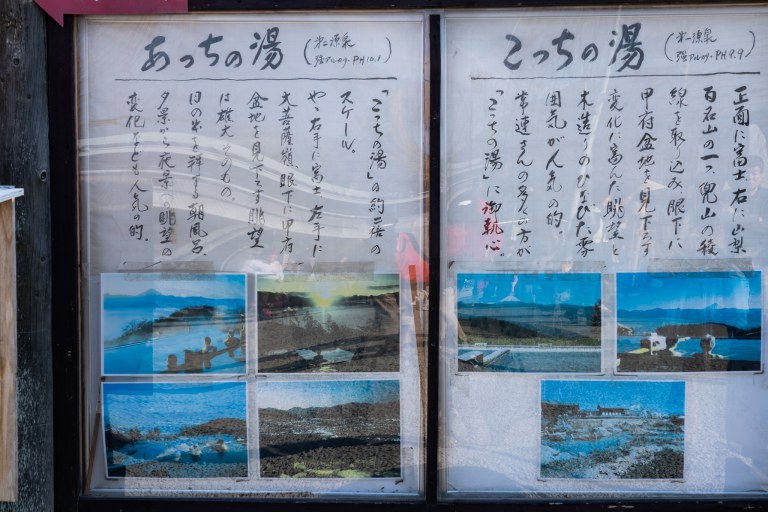 あっちの湯
(第二源泉
強アルカリ・PH10.1)
「こっちの湯」の約二倍の
スケール。
やゝ右手に富士、左手に
大菩薩嶺、眼下に甲府
盆地を見下ろす眺望
は雄大そのもの。
日の出を拝する朝風呂、
夕景から夜景への眺望の
変化なども人気の的。
こっちの湯
(第一源泉
強アルカリ・PH9.9)
正面に富士、右に山梨
百名山の一つ、兜山の稜
線を取り込み、眼下に
甲府盆地を見下ろす
変化に富んだ眺望と
木造りのひなびた雰
囲気が人気の的。
常連さんの多くの方が
「こっちの湯」に御執心。